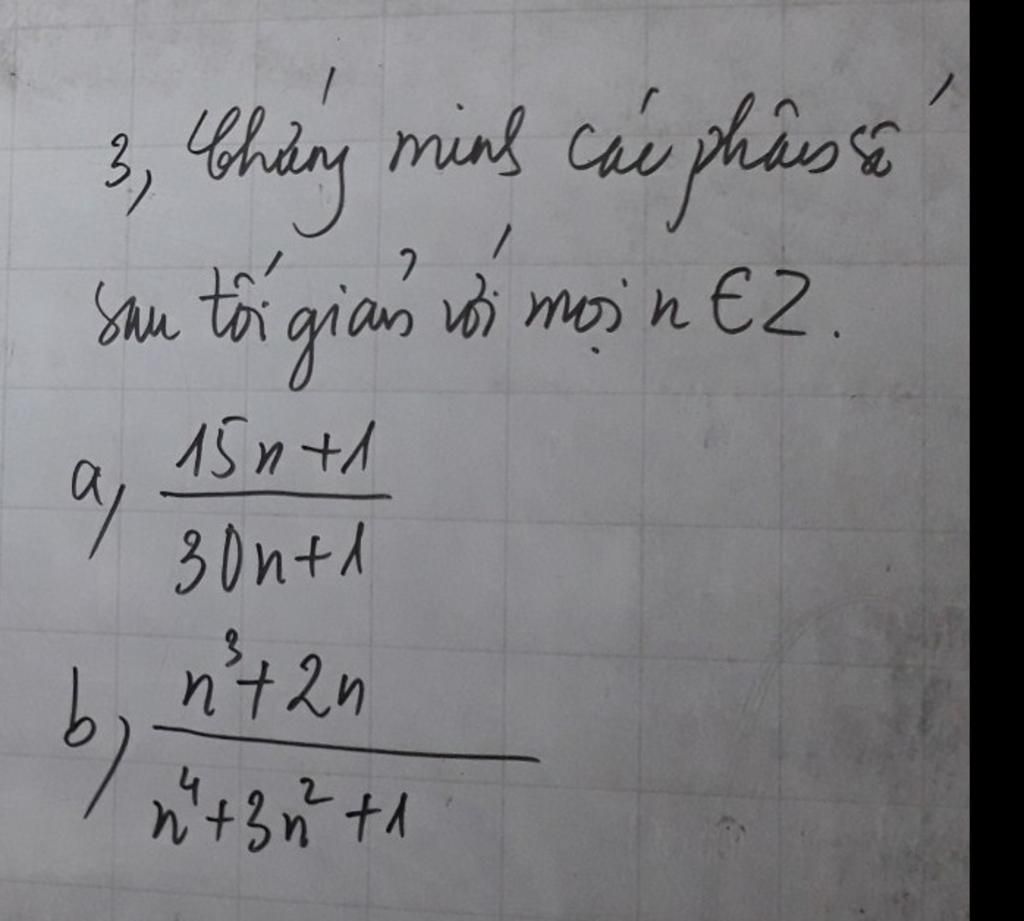 3, Chứng minh các phân số
sau tối giản với mọi n ∈ Z.
a, 15n+1
30n+1
b, n³+2n
n⁴+3n²+1